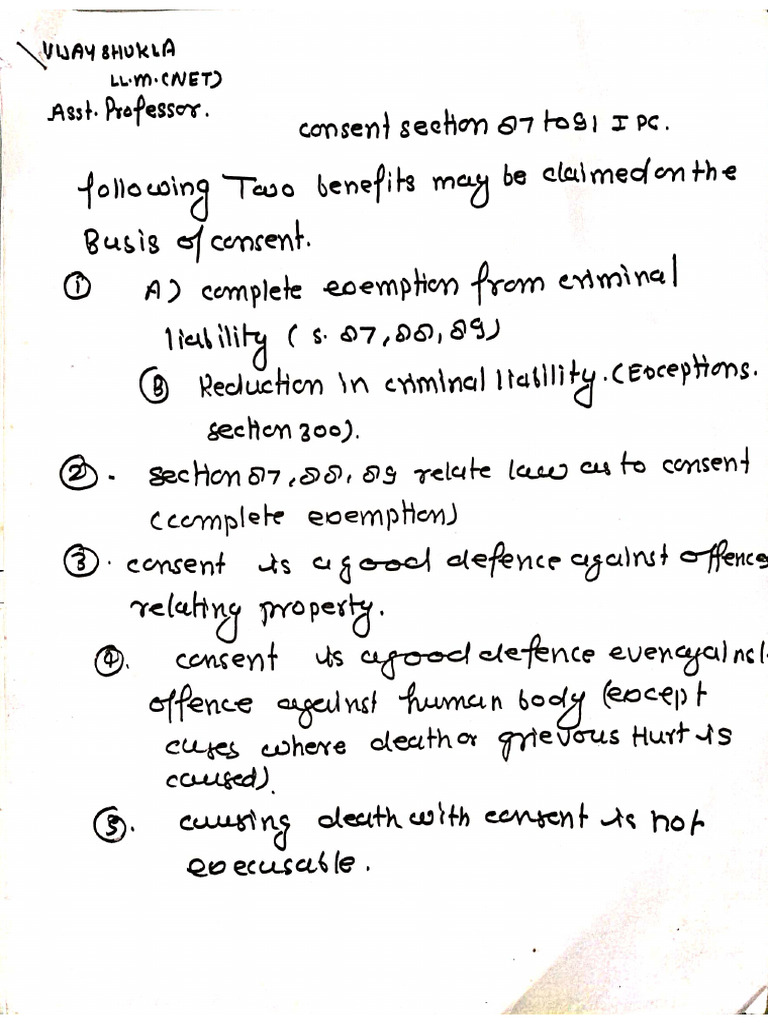 VIJAY SHUKLA
LL.M.(NET)
Asst. Professor.
consent section 87 to 91 IPC.
following Two benefits may be claimed on the
Basis of consent.
① A) complete exemption from criminal
liability ( s. 87, 88, 89)
Ⓑ Reduction in criminal liability. (Exceptions.
section 300).
②. section 87, 88, 89 relate law as to consent
(complete exemption)
③. consent is a good defence against offences
relating property.
④. consent is a good defence even against
offence against human body (except
cases where death or grievous Hurt is
caused).
⑤. causing death with consent is not
excusable.